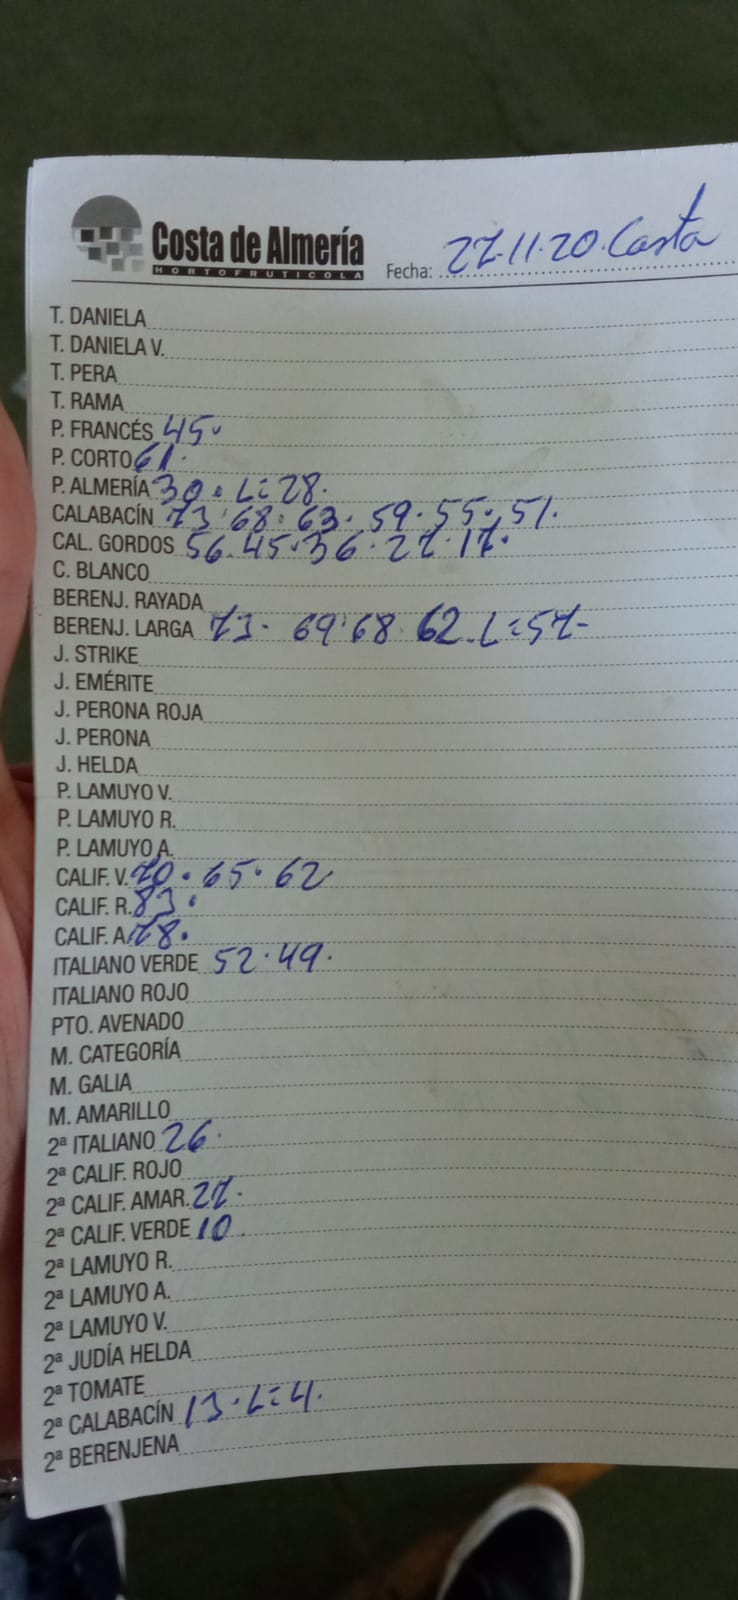 Costa de Almería
HORTOFRUTICOLA
Fecha: 27.11.20. Costa
T. DANIELA
T. DANIELA V.
T. PERA
T. RAMA
P. FRANCÉS 45.
P. CORTO 61.
P. ALMERÍA 30. L=28.
CALABACÍN 73.68.63.59.55.51.
CAL. GORDOS 56.45.36.27.17.
C. BLANCO
BERENJ. RAYADA
BERENJ. LARGA 73. 69.68.62.L=57-
J. STRIKE
J. EMÉRITE
J. PERONA ROJA
J. PERONA
J. HELDA
P. LAMUYO V.
P. LAMUYO R.
P. LAMUYO A.
CALIF. V. 70.65.62
CALIF. R. 83.
CALIF. A. 78.
ITALIANO VERDE 52.49.
ITALIANO ROJO
PTO. AVENADO
M. CATEGORÍA
M. GALIA
M. AMARILLO
2ª ITALIANO 26.
2ª CALIF. ROJO
2ª CALIF. AMAR. 27.
2ª CALIF. VERDE 10.
2ª LAMUYO R.
2ª LAMUYO A.
2ª LAMUYO V.
2ª JUDÍA HELDA
2ª TOMATE
2ª CALABACÍN 13.L=4.
2ª BERENJENA